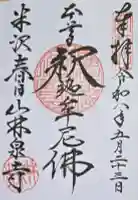 奉拝 令和八年五月二十三日
本尊 釈迦牟尼佛
米沢 春日山林泉寺